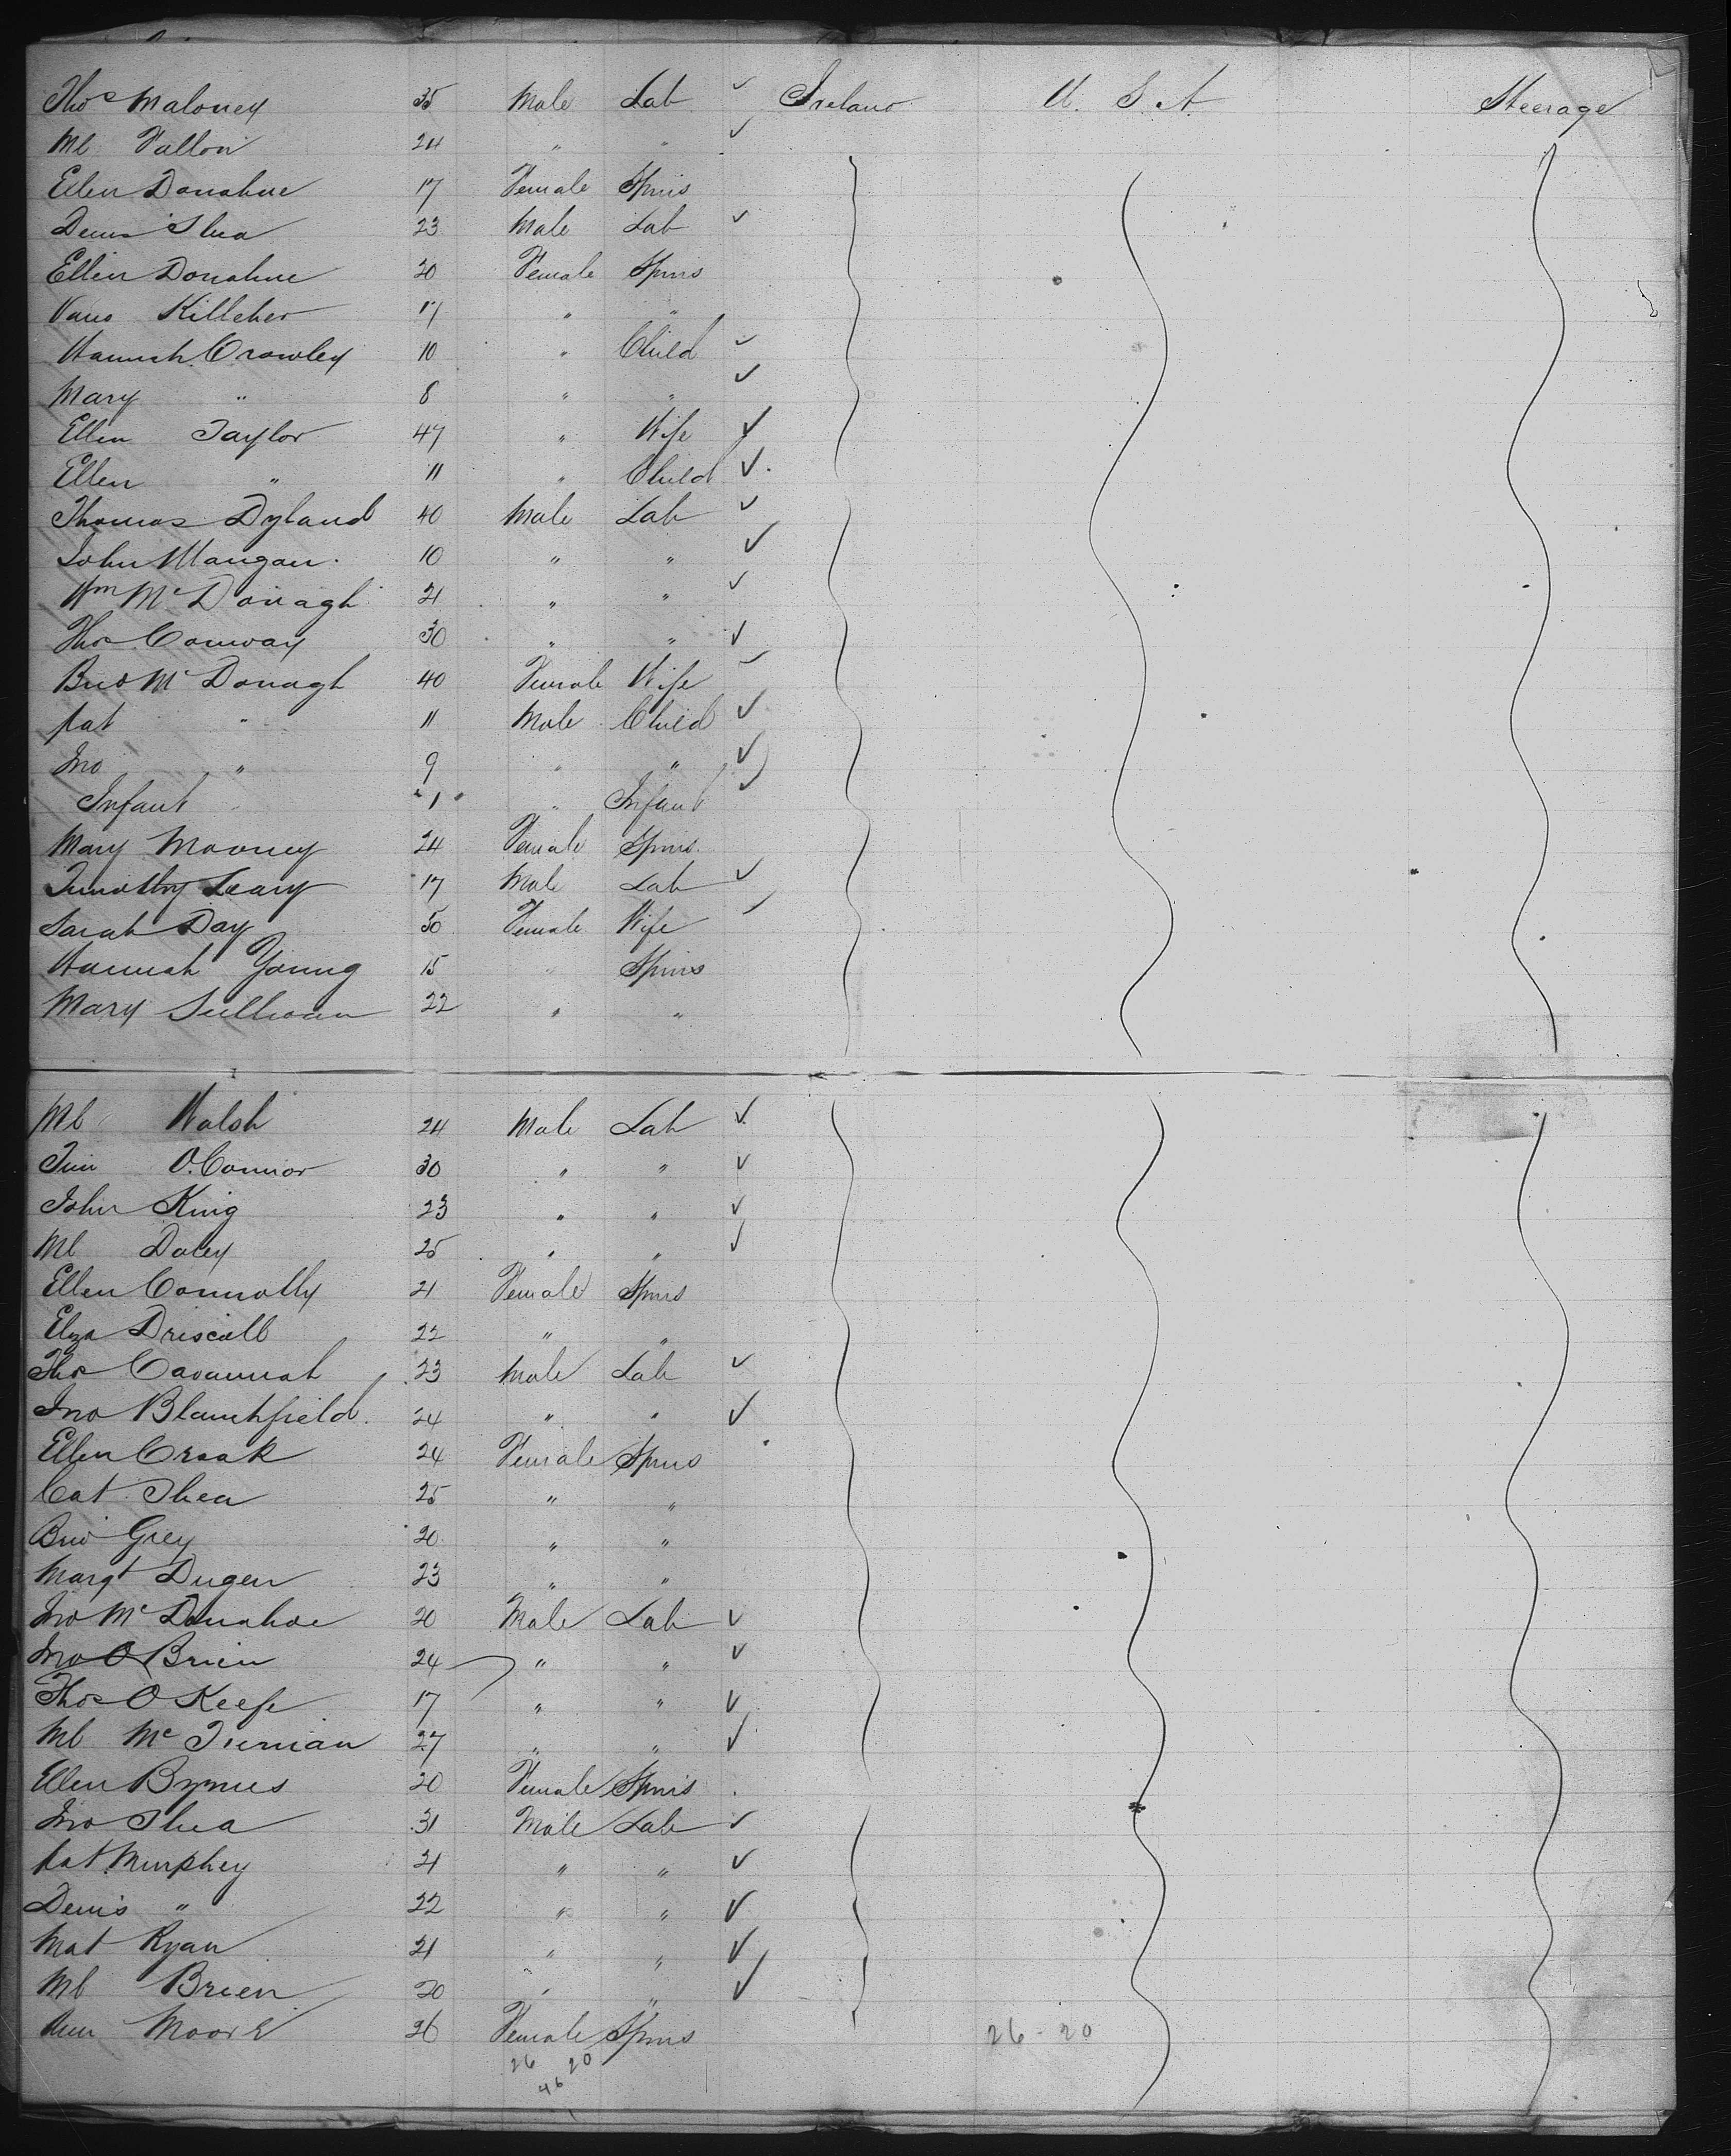 Thos Maloney 35 Male Lab ✓ Ireland U. S. A Steerage
Ml Fallon 24 " " ✓
Ellen Donahue 17 Female Spins
Denis Shea 23 Male Lab ✓
Ellen Donahue 20 Female Spins
Killeher 17 " "
Hannah Crowley 10 " Child ✓
Mary " 8 " " ✓
Ellen Taylor 47 " Wife ✓
Ellen " 11 " Child ✓
Thomas Dyland 40 Male Lab ✓
John Mangan 10 " " ✓
Wm McDonagh 21 " " ✓
Thos Conway 30 " " ✓
Brid McDonagh 40 Female Wife ✓
Pat " 11 Male Child ✓
Jno " 9 " " ✓
Infant 1 " Infant ✓
Mary Mooney 24 Female Spins
Timothy Leary 17 Male Lab ✓
Sarah Day 50 Female Wife ✓
Hannah Young 15 " Spins
Mary Sullivan 22 " "
Ml Walsh 24 Male Lab ✓
Tim O.Connor 30 " " ✓
John King 23 " " ✓
Ml Daley 25 " " ✓
Ellen Connolly 21 Female Spins
Elza Driscoll 22 " "
Thos Cavannah 23 Male Lab ✓
Jno Blanchfield 24 " " ✓
Ellen Croak 24 Female Spins
Cat Shea 25 " "
Brid Grey 20 " "
Margt Dugen 23 " "
Jno McDonahoe 20 Male Lab ✓
Jno O Brien 24 " " ✓
Thos O Keefe 17 " " ✓
Ml McTiernan 27 " " ✓
Ellen Byrnes 20 Female Spins
Jno Shea 31 Male Lab ✓
Pat Murphey 21 " " ✓
Denis " 22 " " ✓
Mat Ryan 21 " " ✓
Ml Brien 20 " " ✓
Ann Moore 26 Female Spins 26-20
26 20
46